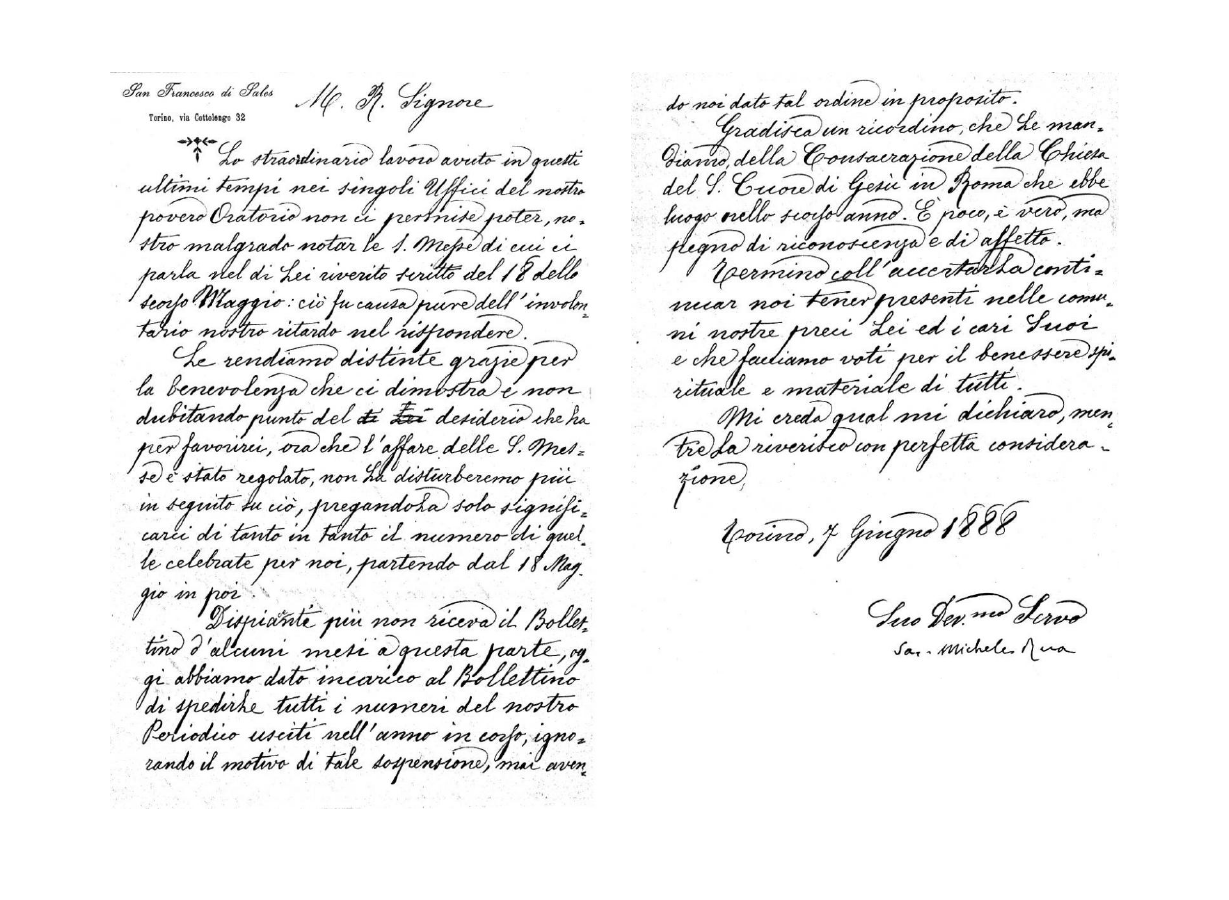 San Francesco di Sales
Torino, via Cottolengo 32
M. R. Signore
Lo straordinario lavoro avuto in questi
ultimi tempi nei singoli Uffici del nostro
povero Oratorio non ci permise poter, no=
stro malgrado notar le S. Messe di cui ci
parla nel di Lei riverito scritto del 18 dello
scorso Maggio: ciò fu causa pure dell'involon=
tario nostro ritardo nel rispondere.
Le rendiamo distinte grazie per
la benevolenza che ci dimostra e non
dubitando punto del di Lei desiderio che ha
per favorirci, ora che l'affare delle S. Mes=
se è stato regolato, non La disturberemo più
in seguito su ciò, pregandoLa solo signifi=
carci di tanto in tanto il numero di quel=
le celebrate per noi, partendo dal 18 Mag=
gio in poi.
Dispiante più non riceva il Bollet=
tino d'alcuni mesi a questa parte, og=
gi abbiamo dato incarico al Bollettino
di spedirLe tutti i numeri del nostro
Periodico usciti nell'anno in corso, igno=
rando il motivo di tale sospensione, mai aven=
do noi dato tal ordine in proposito.
Gradisca un ricordino, che Le man=
diamo, della Consacrazione della Chiesa
del S. Cuore di Gesù in Roma che ebbe
luogo nello scorso anno. È poco, è vero, ma
pegno di riconoscenza e di affetto.
Termino coll'accertarLa conti=
nuar noi tener presenti nelle comu=
ni nostre preci Lei ed i cari Suoi
e che facciamo voti per il benessere spi=
rituale e materiale di tutti.
Mi creda qual mi dichiaro, men=
tre La riverisco con perfetta considera=
zione,
Torino, 7 Giugno 1888
Suo Dev.mo Servo
Sac. Michele Rua